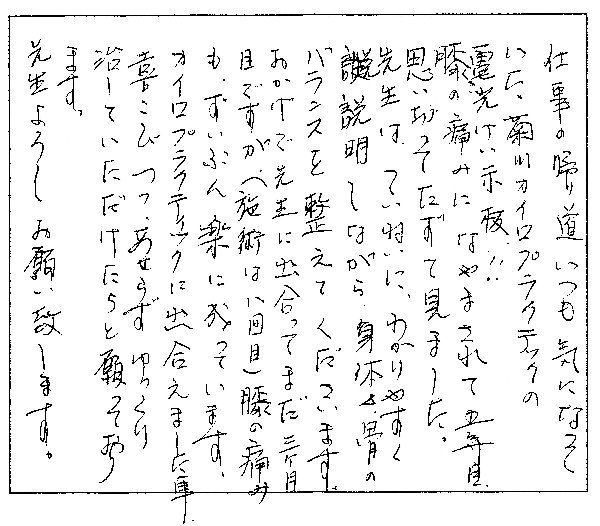 仕事の帰り道いつも気になって
いた菊川カイロプラクテックの
電光けい示板!!
膝の痛みになやまされて五年目
思い切ってたずて見ました。
先生は、ていねいに、わかりやすく
説明しながら身体や骨の
バランスを整えてくださいます。
おかげで先生に出合ってまだ三ヶ月
目ですが(施術は八回目)膝の痛み
も、ずいぶん楽になっています。
カイロプラクティックに出合えました事
喜こびつつ、あせらずゆっくり
治していただけたらと願っており
ます。
先生よろしくお願い致します。